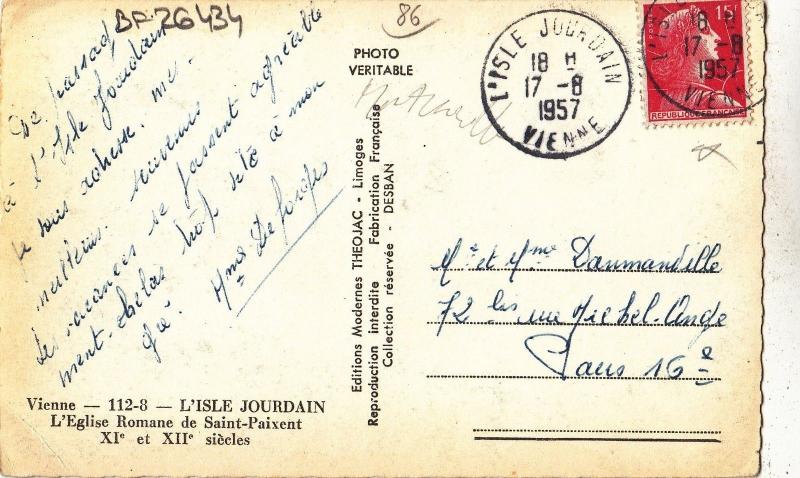 BF-26434
De passage
à l'Isle Jourdain
je vous adresse mes
meilleurs souvenirs
les vacances se passent agréable
ment. hélas trop vite à mon
gré. Mme Deforges
Vienne — 112-8 — L'ISLE JOURDAIN
L'Eglise Romane de Saint-Paixent
XIe et XIIe siècles
86
PHOTO
VERITABLE
Editions Modernes THEOJAC - Limoges
Reproduction Interdite Fabrication Française
Collection réservée - DESBAN
L'ISLE JOURDAIN
18 H
17 -8
1957
VIENNE
15F
REPUBLIQUE FRANÇAISE
18 H
17 -8
1957
VIENNE
Mr et Mme Daumandille
72 bis rue Michel-Ange
Paris 16e